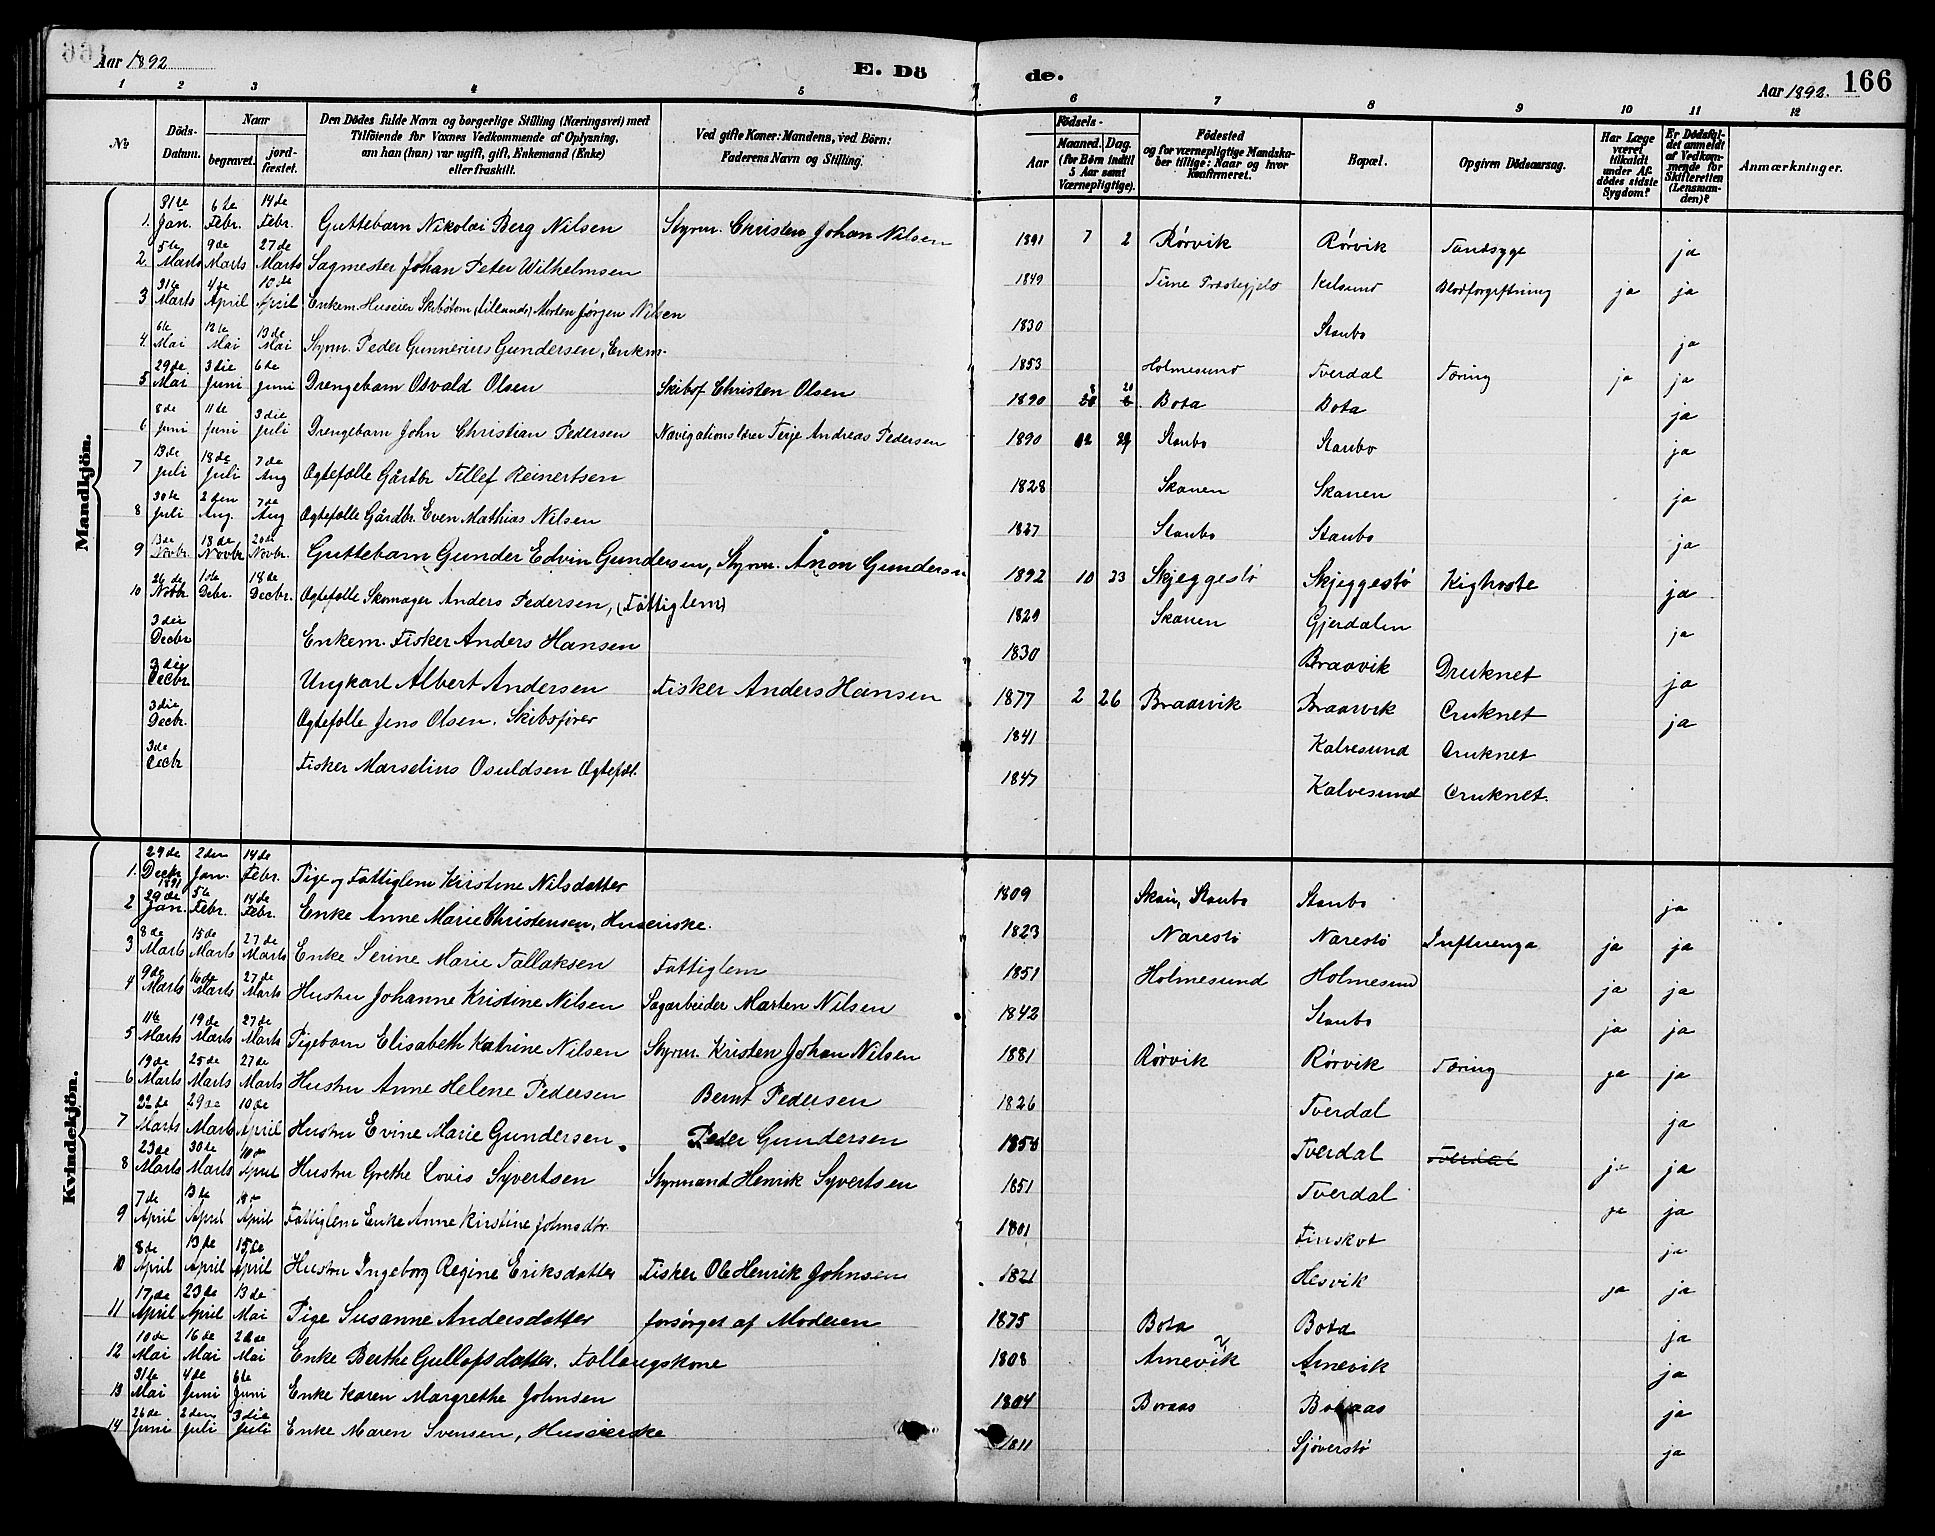 Aar 1892
E. Dö
de.
Aar 1892.
166
1 2 3 4 5 6 7 8 9 10 11 12
№ Döds-Datum. Naar begravet. jordfæstet. Den Dödes fulde Navn og borgerlige Stilling (Næringsvei) med Tilföiende for Voxnes Vedkommende af Oplysning, om han (hun) var ugift, gift, Enkemand (Enke) eller fraskilt. Ved gifte Koner: Mandens, ved Börn: Faderens Navn og Stilling. Födsels- Aar Maaned. Dag. (for Börn indtil 5 Aar samt Værnepligtige). Födested og for værnepligtige Mandskaber tillige: Naar og hvor Konfirmeret. Bopæl. Opgiven Dödsaarsag. Har Læge været tilkaldt under Afdödes sidste Sygdom? Er Dödsfaldet anmeldt af Vedkommende for Skifteretten (Lensmanden)? Anmærkninger.
Mandkjön.
1. 31te Jan. 6te Febr. 14de Febr. Guttebarn Nikolai Berg Nilsen Styrm. Christen Johan Nilsen 1891 7 2 Rørvik Rørvik Tandsyge ja
2. 5te Marts 9de Marts 27de Marts Sagmester Johan Peter Wilhelmsen 1849 Time Præstegjeld Kilsund Blodforgiftning ja ja
3 31te Marts 4de April 10de April Enkem. Huseier Skibstøm (tillands) Morten Jørgen Nilsen 1830 Staubo ja
4 6te Mai 12te Mai 13de Mai Styrm. Peder Gunnerius Gundersen, Enkm. 1853 Holmesund Tverdal Tæring ja ja
5 29de Mai 3die Juni 6te Juni Drengebarn Osvald Olsen Skibsf Christen Olsen 1890 8 20 Bota Bota ja
6 8de Juni 11te Juni 3die Juli Drengebarn John Christian Pedersen Navigationslærer Terje Andreas Pedersen 1890 Staubo Staubo ja
7 13de Juli 18de Juli 7de Aug Ægtefælle Gårdbr Tellef Reinertsen 1828 Skanen Skanen ja
8 30te Juli 2den Aug. 7de Aug Ægtefælle Gårdbr. Even Mathias Nilsen 1827 Staubo Staubo ja
9 13de Novbr. 18de Novbr 20de Novbr. Guttebarn Gunder Edvin Gundersen, Styrm. Anon Gundersn 1892 10 23 Skjeggestø Skjeggestø Kighoste ja
10 26de Novbr 1ste Debr. 18de Decbr. Ægtefælle Skomager Anders Pedersen, (Fattiglem) 1829 Skanen Gjerdalen ja
3die Decbr Enkem. Fisker Anders Hansen 1830 Braavik Druknet ja
3die Decbr. Ungkarl Albert Andersen Fisker Anders Hansen 1877 2 26 Braavik Braavik Druknet ja
3die Decbr. Ægtefælle Jens Olsen. Skibsfører 1841 Kalvesund Druknet
3de Decbr Fisker Marselius Osuldsen Ægtefæl. 1847 Kalvesund Druknet.
Kvindekjön.
1. 29de Decbr 1891 2den Jan. 14de Febr. Pige og Fattiglem Kirstine Nilsdatter 1809 Staubo Staubo ja
2 29de Jan. 5te Febr. 14de Febr. Enke Anne Marie Christensen, Huseierske. 1823 Narestø Narestø Influenza ja ja
3 8de Marts 15de Marts 27de Marts Enke Serine Marie Tallaksen Fattiglem 1851 Holmesund Holmesund ja ja
4 9de Marts 16de Marts 27de Marts Hustru Johanne Kristine Nilsen Sagarbeider Marten Nilsen 1842 Staubo ja ja
5 11te Marts 19de Marts 27de Marts Pigebarn Elisabeth Katrine Nilsen Styrm. Kristen Johan Nilsen 1881 Rørvik Rørvik Tæring ja ja
6 19de Marts 25de Marts 27de Marts Hustru Anne Helene Pedersen Bernt Pedersen 1826 Tverdal ja
7 22de Marts 29de Marts 10de April Hustru Evine Marie Gundersen. Peder Gundersen 1858 Tverdal Tverdal ja ja
8 23de Marts 30de Marts 10de April Hustru Grethe Lovis Syvertsen Styrmand Henrik Syvertsen 1851 Tverdal ja ja
9 7de April 13de April 18de April Fattiglem Enke Anne Kirstine Johnsdtr. 1801 Finskot ja
10 8de April 13de April 15de April Hustru Ingeborg Regine Eriksdatter Fisker Ole Henrik Johnsen 1821 Hesvik ja ja
11 17de April 23de April 13de Mai Pige Susanne Andersdatter forsørget af Moderen 1875 Bota Bota ja
12 10de Mai 16de Mai 22de Mai Enke Berthe Gullofsdatter. Føllaugskone 1808 Arnevik Arnevik ja
13 31te Mai 4de Juni 6te Juni Enke Karen Margrethe Johnsen 1804 Boraas Boraas ja
14 26de Juni 2den Juli 3die Juli Enke Maren Svensen, Huseierske 1811 Sjøverstø ja